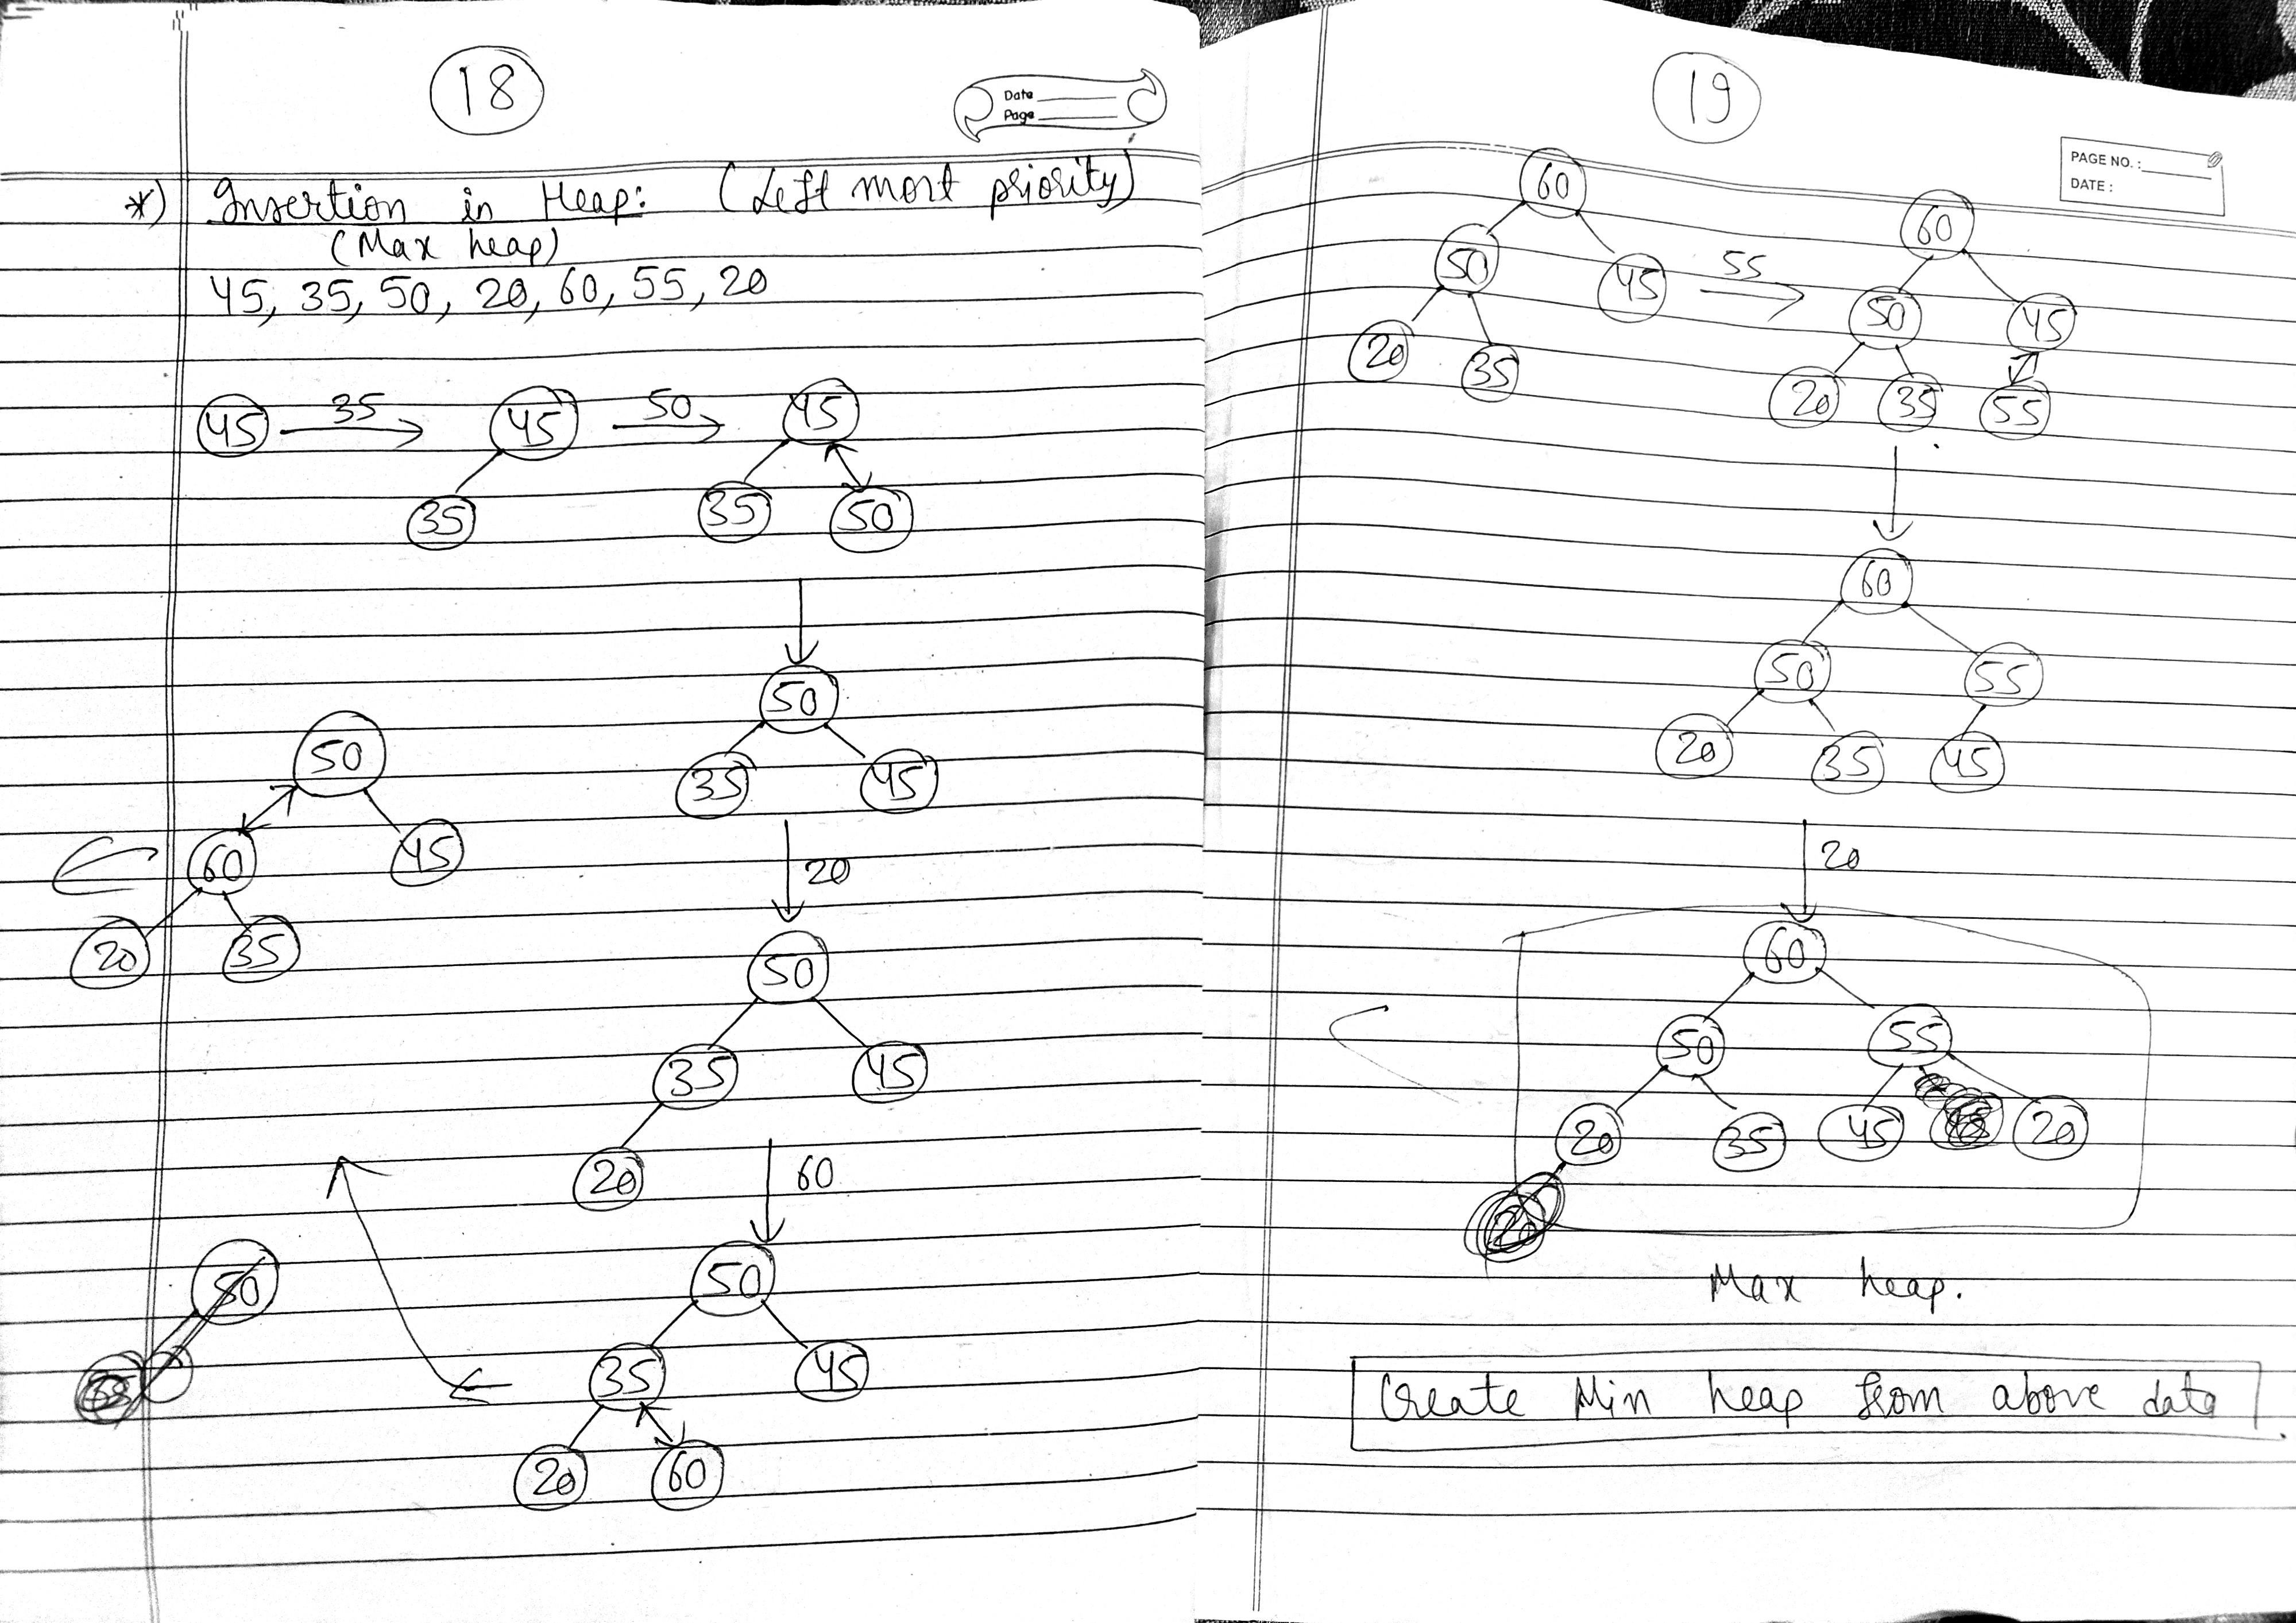 18
Date
Page
*) Insertion in Heap: (Left most priority)
(Max heap)
45, 35, 50, 20, 60, 55, 20
45 35 45 50 45
35 35 50
50
35 45
50
60 45
20 35
20
50
35 45
20
60
50
50
35 45
20 60
19
PAGE NO. :
DATE :
60
50 45
20 35
55
60
50 45
20 35 55
60
50 55
20 35 45
20
60
50 55
20 35 45 20
Max heap.
Create Min heap from above data